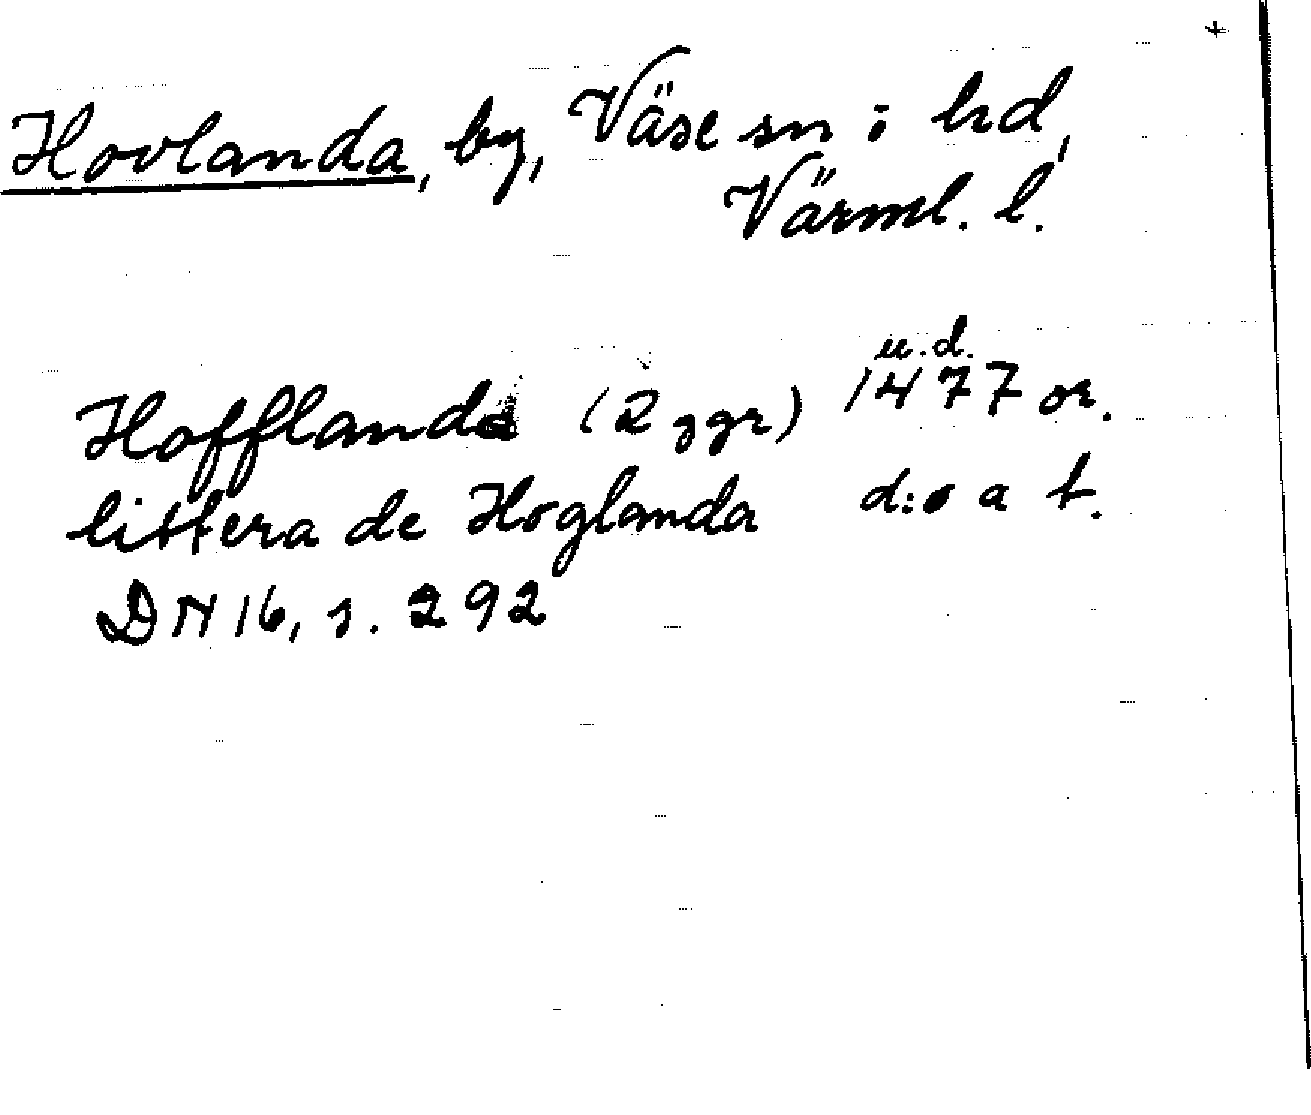 +
Hovlanda, by, Väse sn i hd,
Värml. l.
u.d.
Hofflanda (2 ggr) 1477 or.
littera de Hoglanda d:o a t.
DN 16, s. 292